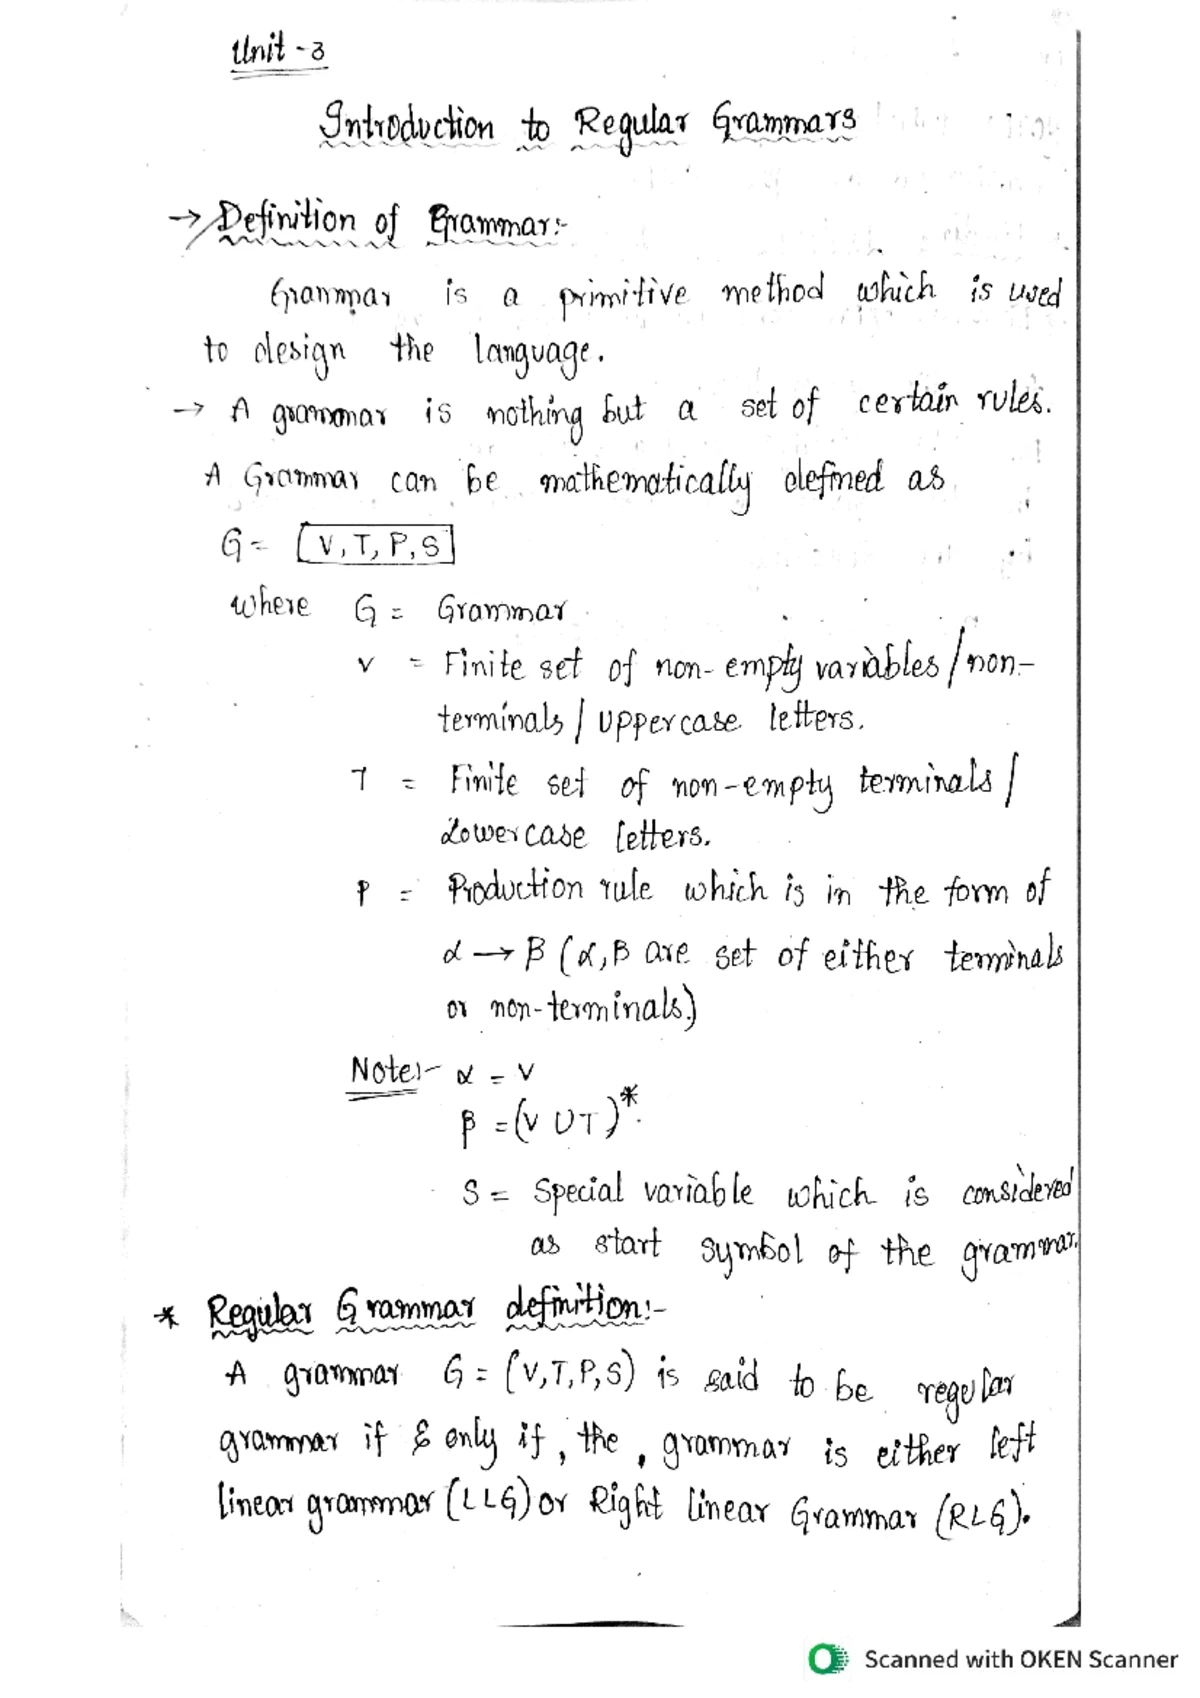 Unit - 3
Introduction to Regular Grammars
→ Definition of Grammar:-
Grammar is a primitive method which is used
to design the language.
→ A grammar is nothing but a set of certain rules.
A Grammar can be mathematically defined as
G = [V, T, P, S]
where G = Grammar
V = Finite set of non-empty variables / non-
terminals / uppercase letters.
T = Finite set of non-empty terminals /
Lowercase letters.
P = Production rule which is in the form of
α → β (α, β are set of either terminals
or non-terminals)
Note:- α = V
β = (V ∪ T)*.
S = Special variable which is considered
as start symbol of the grammar.
* Regular Grammar definition:-
A grammar G = (V, T, P, S) is said to be regular
grammar if & only if, the, grammar is either left
linear grammar (LLG) or Right linear Grammar (RLG).
Scanned with OKEN Scanner